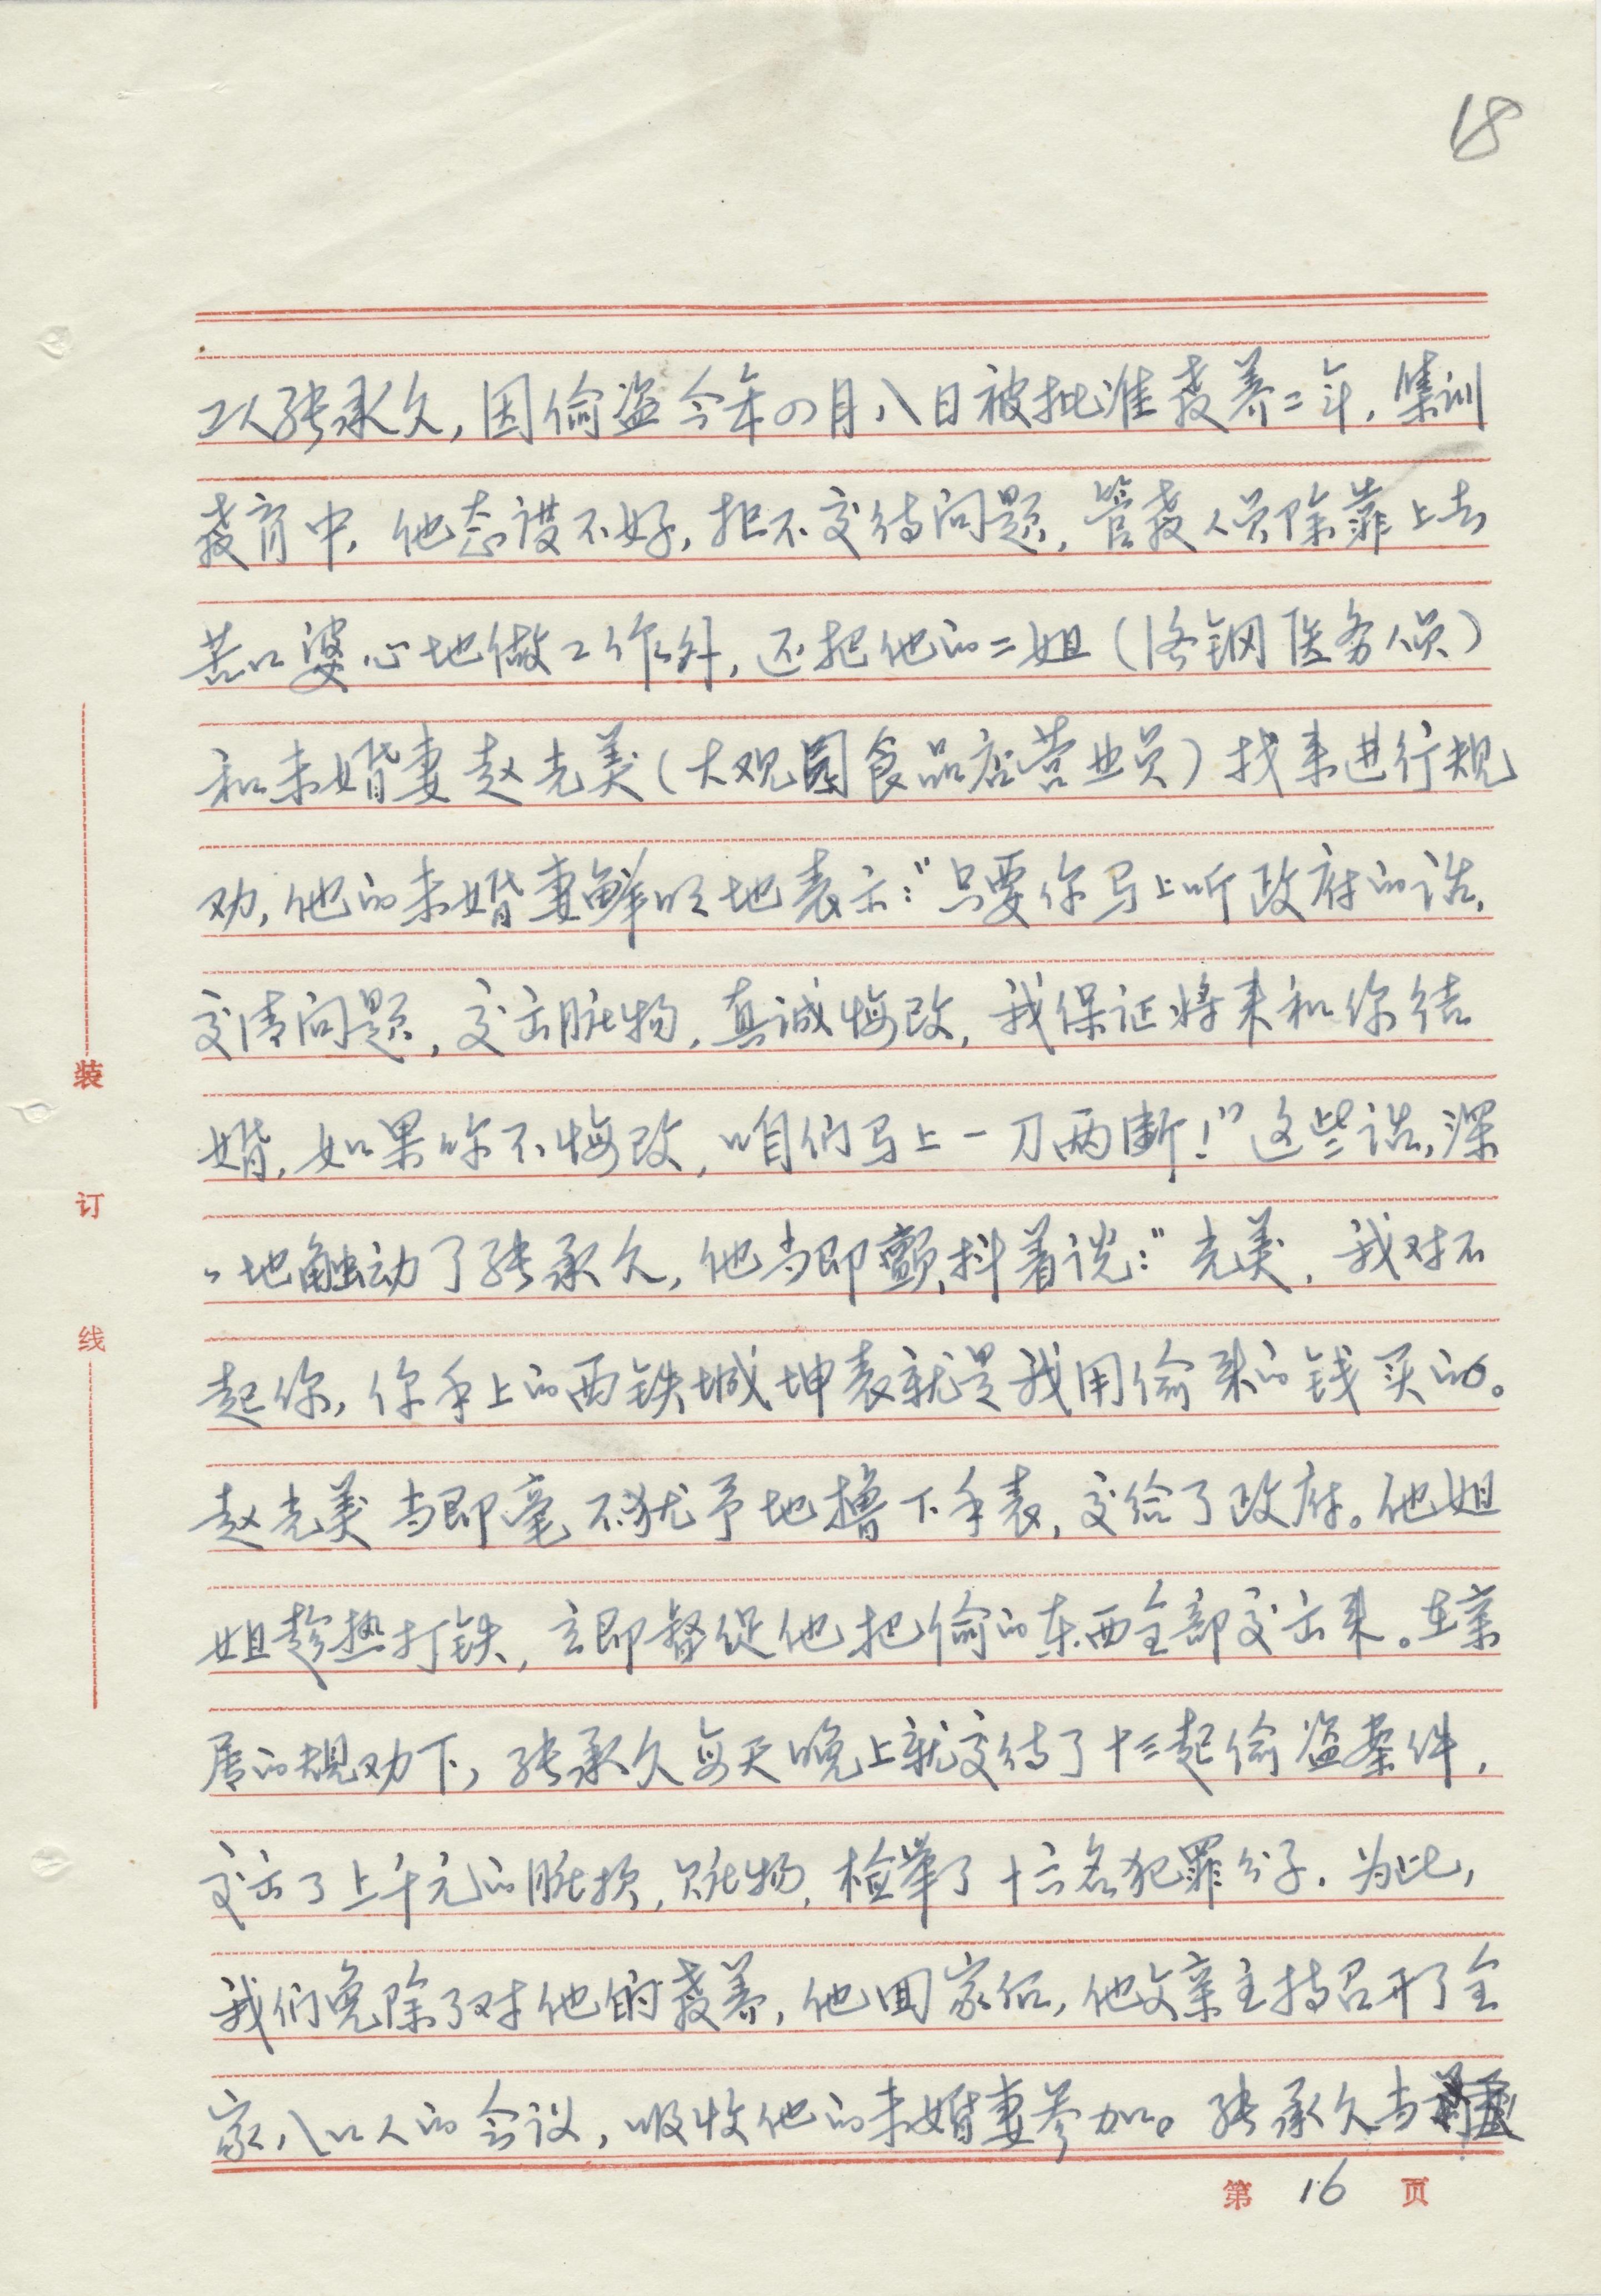 18
工人张承久，因偷盗今年四月八日被批准教养二年，集训
教育中，他态度不好，拒不交待问题，管教人员除靠上去
苦口婆心地做工作外，还把他的二姐（济钢医务人员）
和未婚妻赵光美（大观园食品店营业员）找来进行规
劝，他的未婚妻鲜明地表示：“只要你马上听政府的话，
交清问题，交出脏物，真诚悔改，我保证将来和你结
婚，如果你不悔改，咱们马上一刀两断！”这些话，深
々地触动了张承久，他当即颤抖着说：“光美，我对不
起你，你手上的西铁城坤表就是我用偷来的钱买的。
赵光美当即毫不犹予地撸下手表，交给了政府。他姐
姐趁热打铁，立即督促他把偷的东西全部交出来。在亲
属的规劝下，张承久每天晚上就交待了十三起偷盗案件，
交出了上千元的脏款，赃物，检举了十六名犯罪分子。为此，
我们免除了对他的教养，他回家后，他父亲主持召开了全
家八口人的会议，吸收他的未婚妻参加。张承久当
装
订
线
第 16 页